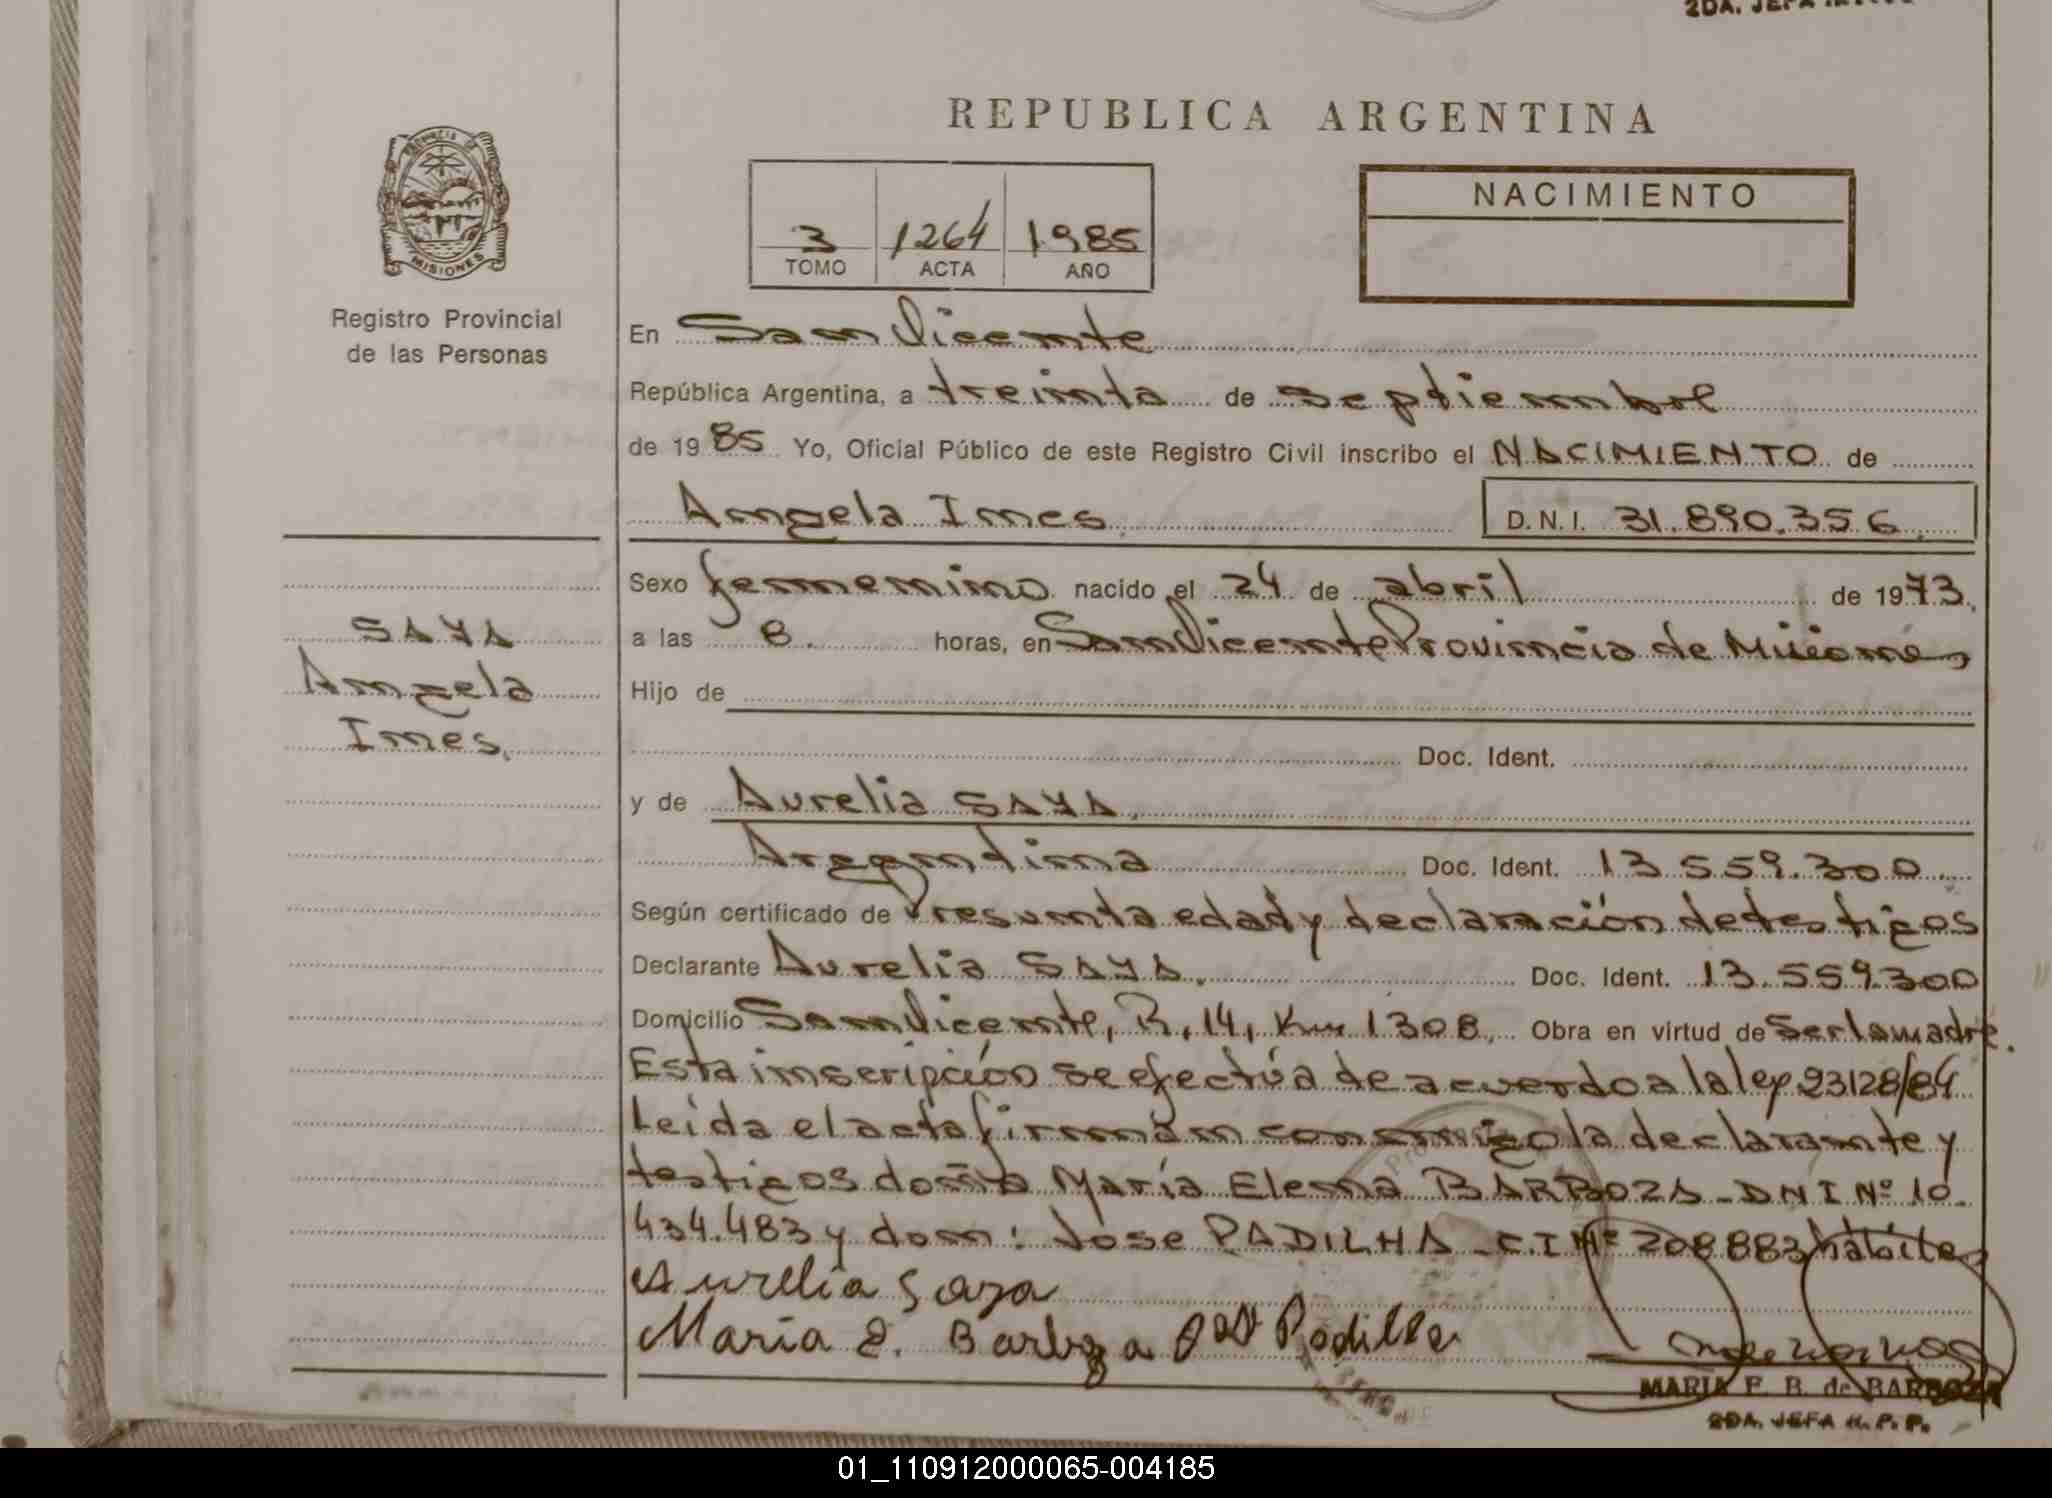 2DA. JEFA
REPUBLICA ARGENTINA
PROVINCIA DE
MISIONES
Registro Provincial
de las Personas
3 1264 1985
TOMO ACTA AÑO
NACIMIENTO
En San Vicente
República Argentina, a treinta de septiembre
de 1985 Yo, Oficial Público de este Registro Civil inscribo el NACIMIENTO de
Angela Ines D.N.I. 31.890.356
Sexo femenino nacido el 24 de abril de 1973.
a las 8. horas, en San Vicente Provincia de Misiones
SAYA
Angela
Ines.
Hijo de
Doc. Ident.
y de Aurelia SAYA.
Argentina Doc. Ident. 13.559.300.
Según certificado de Presunta edad y declaración de testigos
Declarante Aurelia SAYA. Doc. Ident. 13.559.300
Domicilio San Vicente, R. 14, Km 1308, Obra en virtud de Ser la madre.
Esta inscripción se efectúa de acuerdo a la ley 23128/84
Leída el acta firman conmigo la declarante y
testigos doña María Elena BARBOZA - DNI Nº 10.
434.483 y don: Jose PADILHA - C.I Nº 208883 habites
Aurelia Saya
Maria E. Barboza Padilla
MARIA E. B. de BARBOZA
2DA. JEFA R. P. P.
01_110912000065-004185